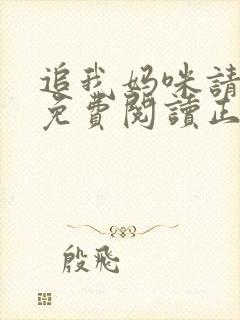 追我妈咪請
免費閱讀正
殷飛